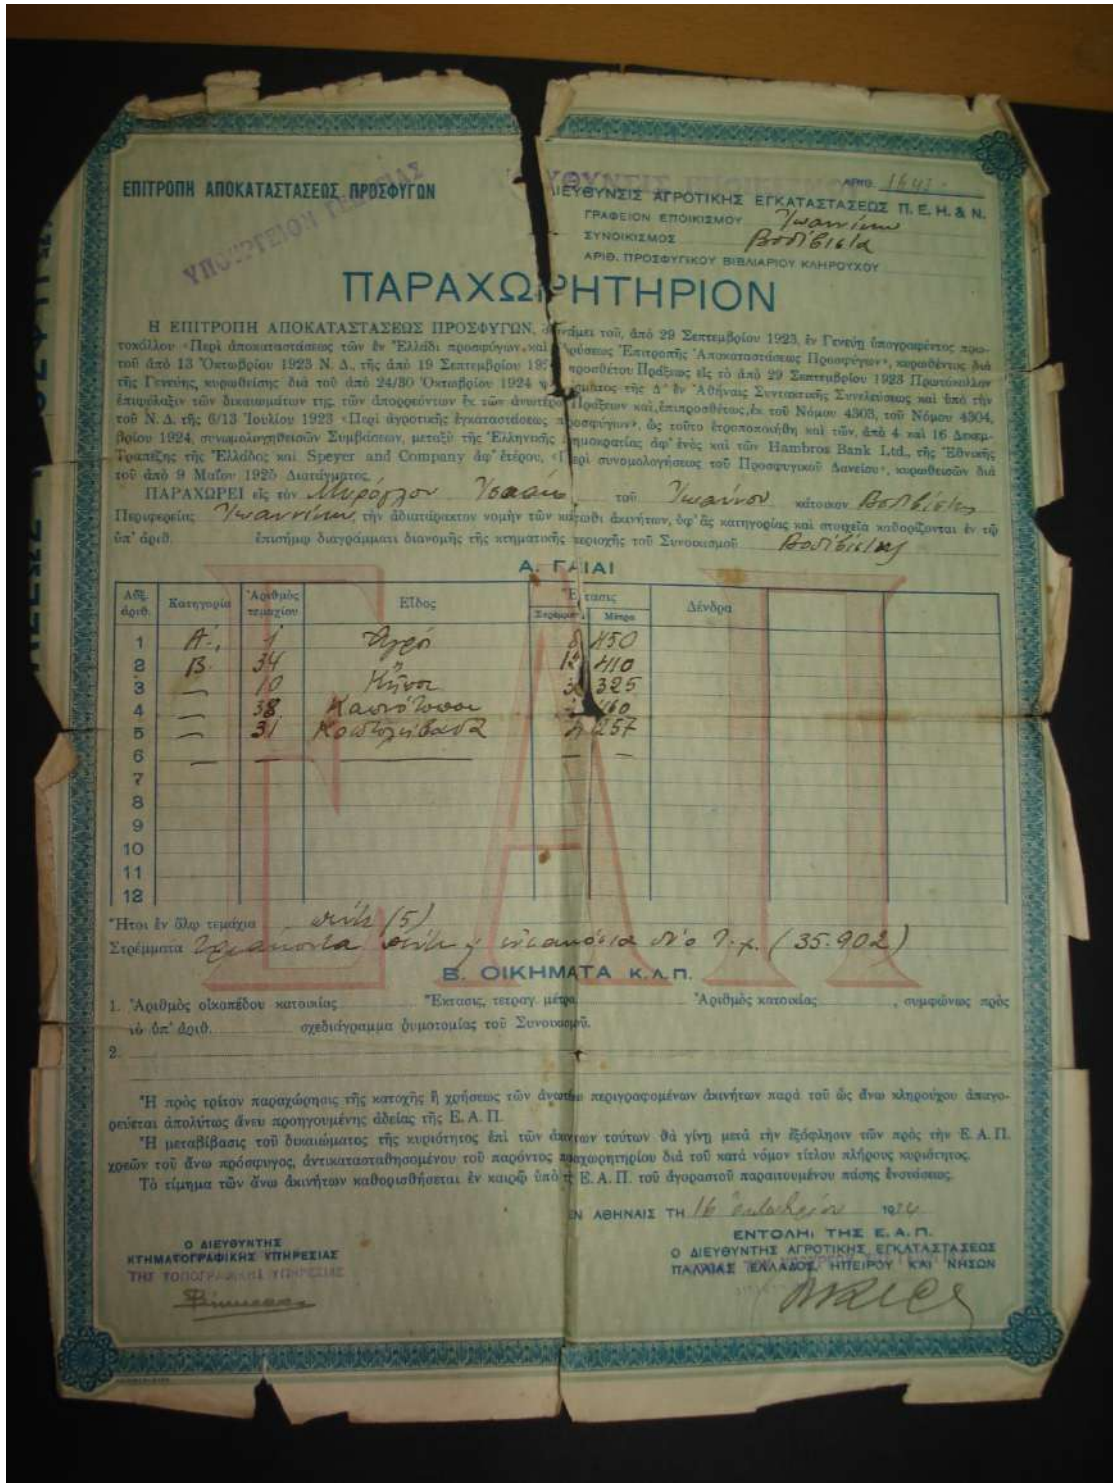 ΕΠΙΤΡΟΠΗ ΑΠΟΚΑΤΑΣΤΑΣΕΩΣ ΠΡΟΣΦΥΓΩΝ
ΥΠΟΥΡΓΕΙΟΝ ΓΕΩΡΓΙΑΣ
ΑΡΙΘ.
ΔΙΕΥΘΥΝΣΙΣ ΑΓΡΟΤΙΚΗΣ ΕΓΚΑΤΑΣΤΑΣΕΩΣ Π. Ε. Η. & Ν.
ΓΡΑΦΕΙΟΝ ΕΠΟΙΚΙΣΜΟΥ Ἰωαννίνων
ΣΥΝΟΙΚΙΣΜΟΣ Βοδίβιστα
ΑΡΙΘ. ΠΡΟΣΦΥΓΙΚΟΥ ΒΙΒΛΙΑΡΙΟΥ ΚΛΗΡΟΥΧΟΥ
ΠΑΡΑΧΩΡΗΤΗΡΙΟΝ
Η ΕΠΙΤΡΟΠΗ ΑΠΟΚΑΤΑΣΤΑΣΕΩΣ ΠΡΟΣΦΥΓΩΝ, δυνάμει τοῦ, ἀπό 29 Σεπτεμβρίου 1923, ἐν Γενεύῃ ὑπογραφέντος πρω-
τοκόλλου «Περὶ ἀποκαταστάσεως τῶν ἐν Ἑλλάδι προσφύγων καὶ ἱδρύσεως Ἐπιτροπῆς Ἀποκαταστάσεως Προσφύγων», κυρωθέντος διὰ
τοῦ ἀπό 13 Ὀκτωβρίου 1923 Ν. Δ., τῆς ἀπό 19 Σεπτεμβρίου προσθέτου Πράξεως εἰς τὸ ἀπό 29 Σεπτεμβρίου 1923 Πρωτόκολλον
τῆς Γενεύης, κυρωθείσης διὰ τοῦ ἀπό 24/30 Ὀκτωβρίου 1924 ψηφίσματος τῆς Δ' ἐν Ἀθήναις Συντακτικῆς Συνελεύσεως καὶ ὑπὸ τὴν
ἐπιφύλαξιν τῶν δικαιωμάτων της, τῶν ἀπορρεόντων ἐκ τῶν ἀνωτέρω Πράξεων καὶ, ἐπιπροσθέτως, ἐκ τοῦ Νόμου 4303, τοῦ Νόμου 4304,
τοῦ Ν. Δ. τῆς 6/13 Ἰουλίου 1923 «Περὶ ἀγροτικῆς ἐγκαταστάσεως προσφύγων», ὡς τοῦτο ἐτροποποιήθη καὶ τῶν, ἀπό 4 καὶ 16 Δεκεμ-
βρίου 1924, συνομολογηθεισῶν Συμβάσεων, μεταξὺ τῆς Ἑλληνικῆς Δημοκρατίας ἀφ' ἑνὸς καὶ τῶν Hambros Bank Ltd., τῆς Ἐθνικῆς
Τραπέζης τῆς Ἑλλάδος καὶ Speyer and Company ἀφ' ἑτέρου, «Περὶ συνομολογήσεως τοῦ Προσφυγικοῦ Δανείου», κυρωθεισῶν διὰ
τοῦ ἀπό 9 Μαΐου 1925 Διατάγματος,
ΠΑΡΑΧΩΡΕΙ εἰς τὸν Μυρόγλου Ἰσαάκ τοῦ Ἰωάννου κάτοικον Βοδίβιστης
Περιφερείας Ἰωαννίνων, τὴν ἀδιατάρακτον νομὴν τῶν κάτωθι ἀκινήτων, ὑφ' ἃς κατηγορίας καὶ στοιχεῖα καθορίζονται ἐν τῷ
ὑπ' ἀριθ. ἐπισήμῳ διαγράμματι διανομῆς τῆς κτηματικῆς περιοχῆς τοῦ Συνοικισμοῦ Βοδίβιστης
Α. ΓΑΙΑΙ
Αὔξ. ἀριθ. Κατηγορία Ἀριθμὸς τεμαχίου Εἶδος Ἔκτασις Στρέμματα Μέτρα Δένδρα
1 Α'. 1 Ἀγροί 450
2 Β. 34 " 410
3 — 10 Κῆποι 3 325
4 — 38 Καπνότοποι 460
5 — 31 Κοπτολείβαδα 257
6 — — — — —
7
8
9
10
11
12
Ἤτοι ἐν ὅλῳ τεμάχια πέντε (5)
Στρέμματα τριάκοντα πέντε ἐννιακόσια δύο τ.χ. (35.902)
Β. ΟΙΚΗΜΑΤΑ Κ.Λ.Π.
1. Ἀριθμὸς οἰκοπέδου κατοικίας Ἔκτασις, τετραγ. μέτρα Ἀριθμὸς κατοικίας , συμφώνως πρὸς
τὸ ὑπ' ἀριθ. σχεδιάγραμμα ῥυμοτομίας τοῦ Συνοικισμοῦ.
2.
Ἡ πρὸς τρίτον παραχώρησις τῆς κατοχῆς ἢ χρήσεως τῶν ἀνωτέρω περιγραφομένων ἀκινήτων παρὰ τοῦ ὡς ἄνω κληρούχου ἀπαγο-
ρεύεται ἀπολύτως ἄνευ προηγουμένης ἀδείας τῆς Ε. Α. Π.
Ἡ μεταβίβασις τοῦ δικαιώματος τῆς κυριότητος ἐπὶ τῶν ἀκινήτων τούτων θὰ γίνῃ μετὰ τὴν ἐξόφλησιν τῶν πρὸς τὴν Ε. Α. Π.
χρεῶν τοῦ ἄνω πρόσφυγος, ἀντικατασταθησομένου τοῦ παρόντος παραχωρητηρίου διὰ τοῦ κατὰ νόμον τίτλου πλήρους κυριότητος.
Τὸ τίμημα τῶν ἄνω ἀκινήτων καθορισθήσεται ἐν καιρῷ ὑπὸ τῆς Ε. Α. Π. τοῦ ἀγοραστοῦ παραιτουμένου πάσης ἐνστάσεως.
ΕΝ ΑΘΗΝΑΙΣ ΤΗ 16 Ὀκτωβρίου
ΕΝΤΟΛΗ: ΤΗΣ Ε. Α. Π.
Ο ΔΙΕΥΘΥΝΤΗΣ ΑΓΡΟΤΙΚΗΣ ΕΓΚΑΤΑΣΤΑΣΕΩΣ
ΠΑΛΑΙΑΣ ΕΛΛΑΔΟΣ, ΗΠΕΙΡΟΥ ΚΑΙ ΝΗΣΩΝ
Ο ΔΙΕΥΘΥΝΤΗΣ
ΚΤΗΜΑΤΟΓΡΑΦΙΚΗΣ ΥΠΗΡΕΣΙΑΣ
ΤΗΣ ΤΟΠΟΓΡΑΦΙΚΗΣ ΥΠΗΡΕΣΙΑΣ
ΕΑΠ